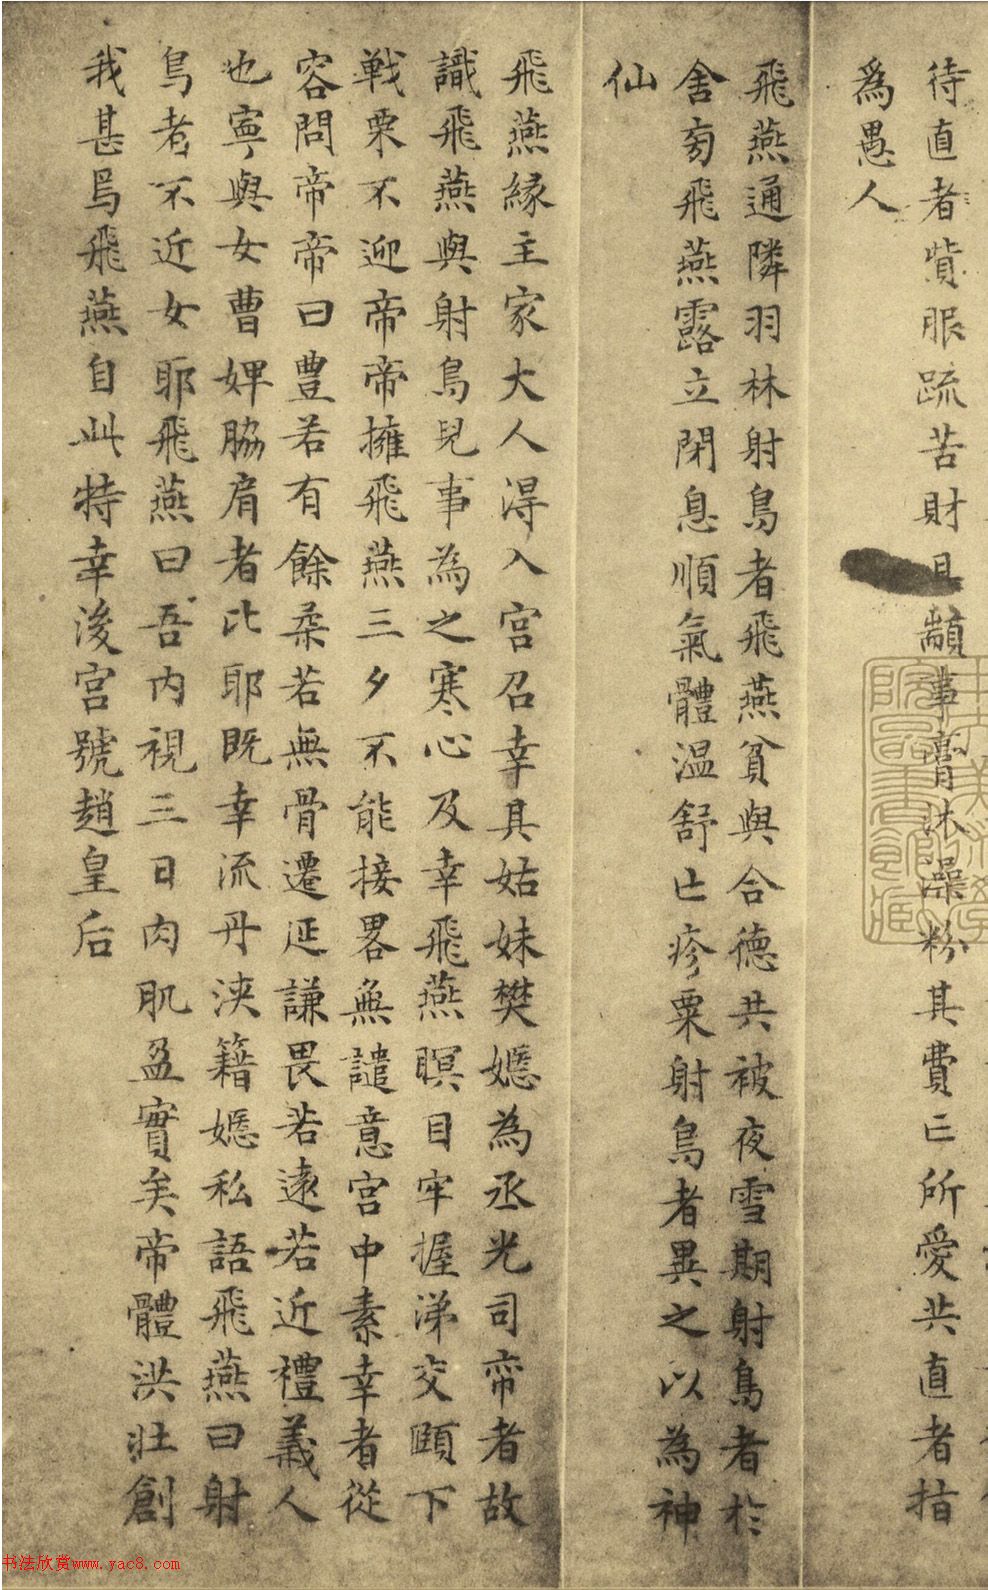 待直者貲服疏苦財且顓事膏沐澡粉其費亡所愛共直者指
為愚人
飛燕通隣羽林射鳥者飛燕貧與合德共被夜雪期射鳥者於
舍旁飛燕露立閉息順氣體温舒亡疹粟射鳥者異之以為神
仙
飛燕緣主家大人得入宮召幸具姑妹樊嫕為丞光司帘者故
識飛燕與射鳥兒事為之寒心及幸飛燕瞑目牢握涕交頤下
戰栗不迎帝帝擁飛燕三夕不能接畧無譴意宮中素幸者從
容問帝帝曰豊若有餘柔若無骨遷延謙畏若遠若近禮義人
也寧與女曹婢脇肩者比耶既幸流丹浹籍嫕私語飛燕曰射
鳥者不近女耶飛燕曰吾内視三日肉肌盈實矣帝體洪壯創
我甚焉飛燕自此特幸後宮號趙皇后
书法欣赏www.yac8.com